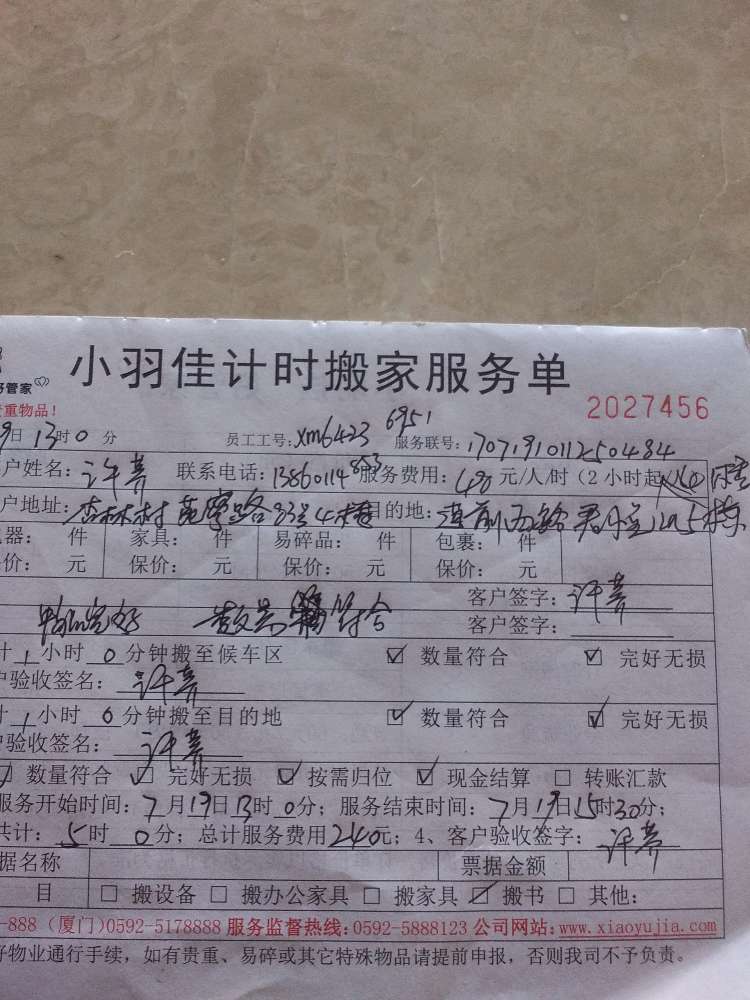 小羽佳计时搬家服务单
好管家
2027456
贵重物品!
9日13时0分 员工工号:xm6423 6951 服务联号:1707191011250484
户姓名:许菁 联系电话:13860114 服务费用:480元/人/时(2小时起
户地址:杏林村 路83号4楼 目的地:莲前西路
器: 件 家具: 件 易碎品: 件 包裹: 件
价: 元 保价: 元 保价: 元 保价: 元
客户签字:许菁
物品完好 数量 符合 客户签字:
计1小时0分钟搬至候车区 ☑ 数量符合 ☑ 完好无损
户验收签名:许菁
计1小时0分钟搬至目的地 ☑ 数量符合 ☑ 完好无损
户验收签名:许菁
☑ 数量符合 ☑ 完好无损 ☑ 按需归位 ☑ 现金结算 □ 转账汇款
服务开始时间:7月19日13时0分;服务结束时间:7月19日15时30分;
共计:5时0分;总计服务费用2440元;4、客户验收签字:许菁
据名称 票据金额
目 □ 搬设备 □ 搬办公家具 □ 搬家具 ☑ 搬书 □ 其他:
-888(厦门)0592-5178888 服务监督热线:0592-5888123 公司网站:www.xiaoyujia.com
好物业通行手续,如有贵重、易碎或其它特殊物品请提前申报,否则我司不予负责。